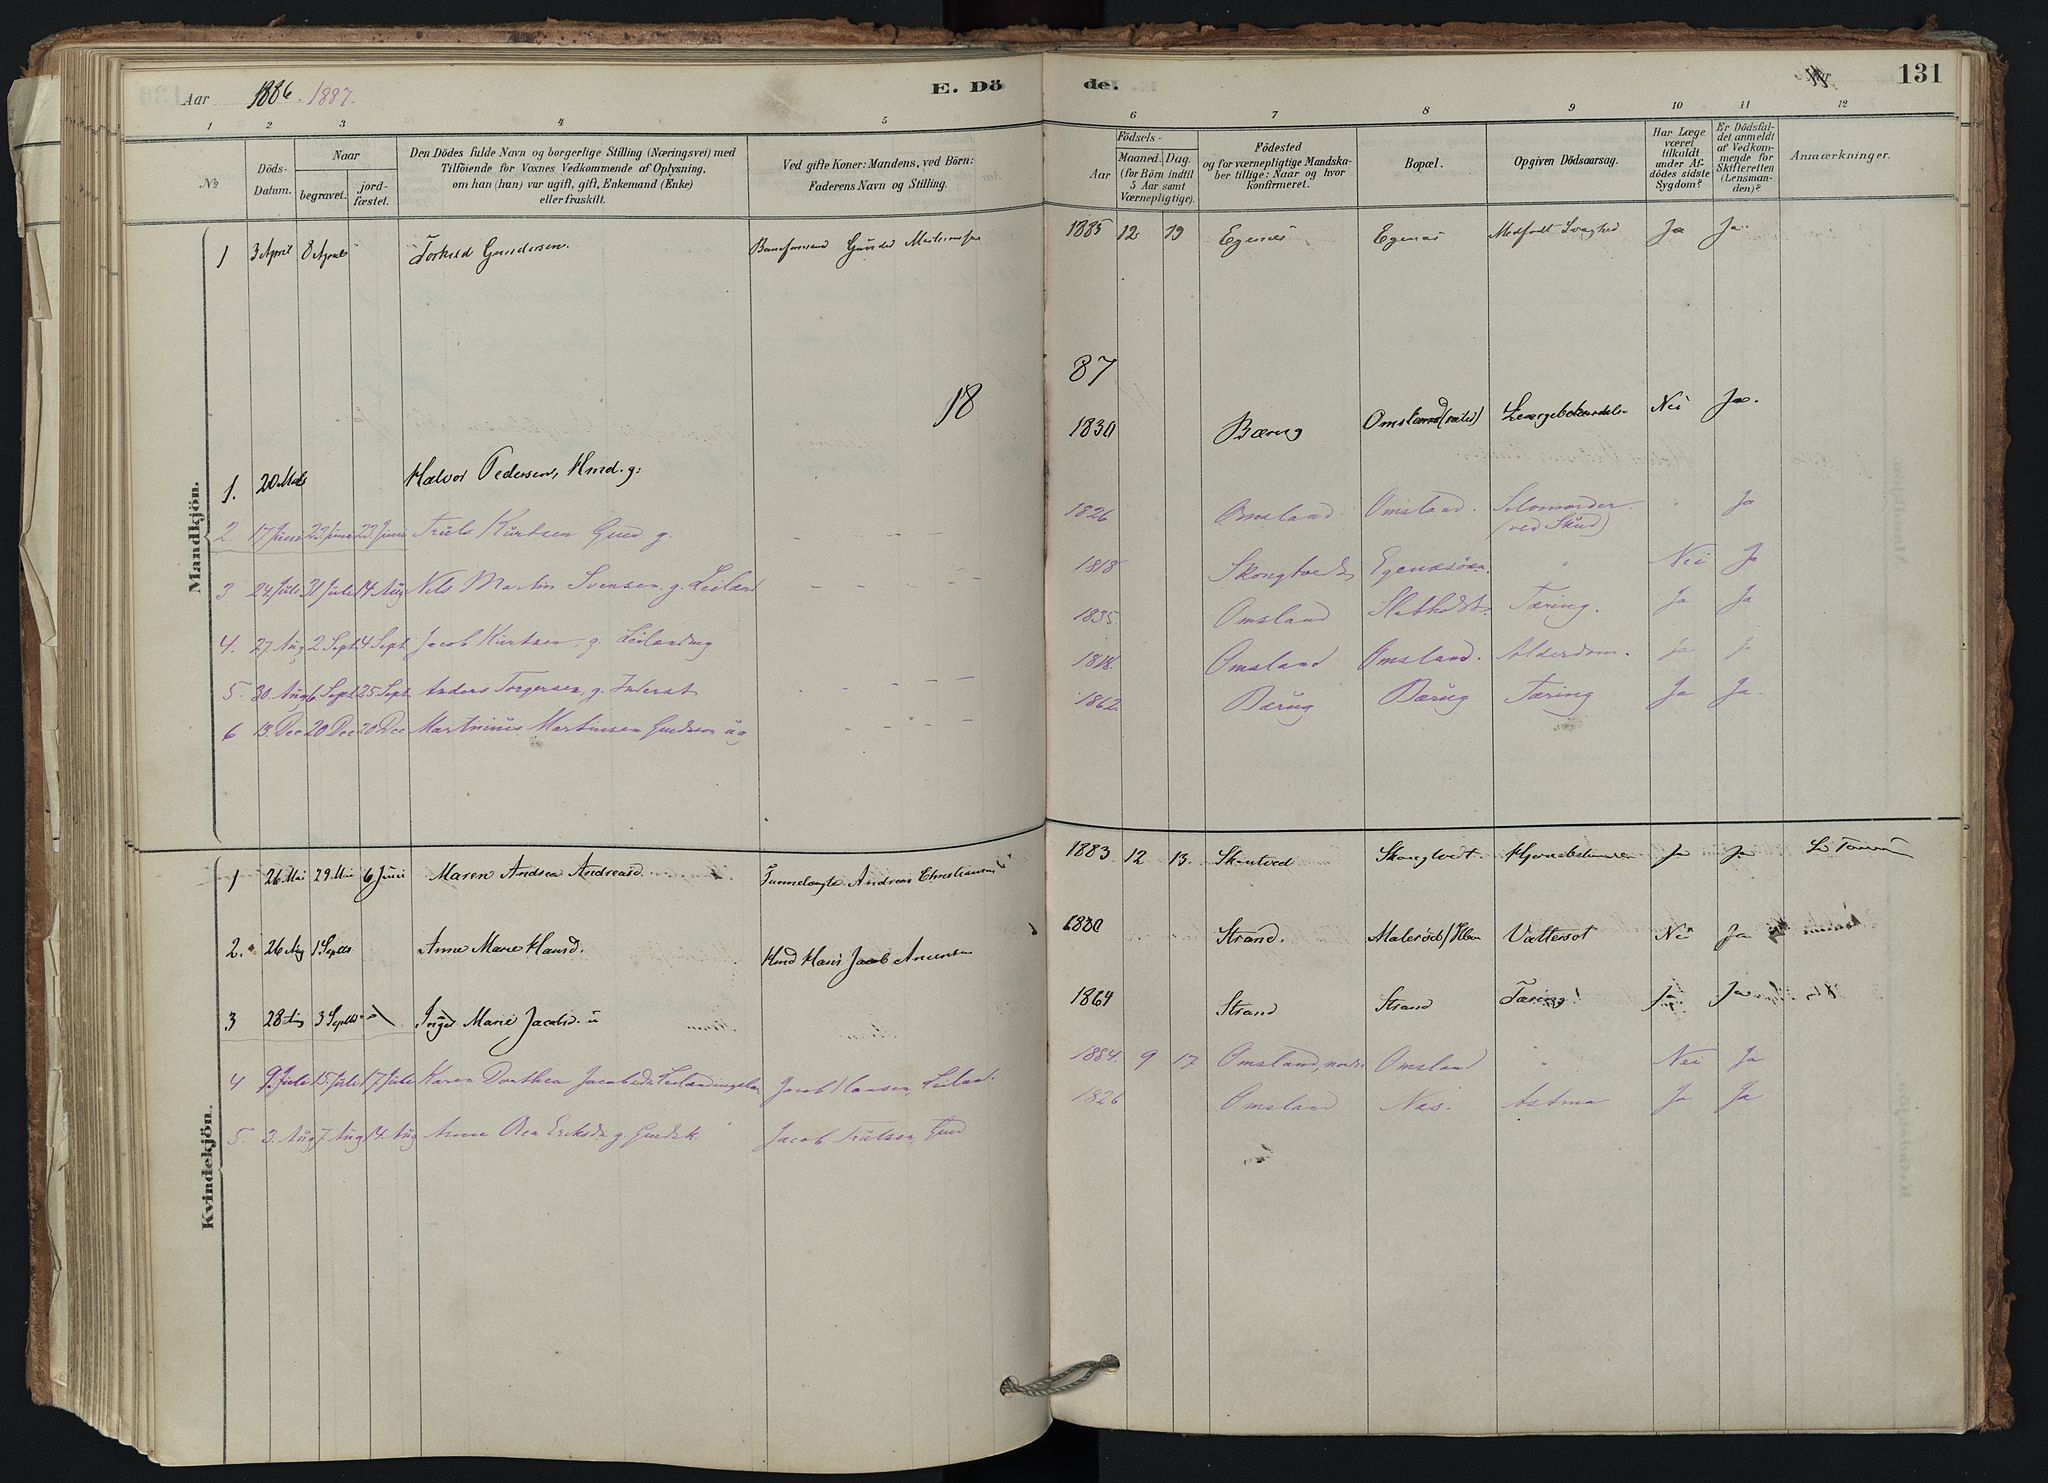 Aar 1886. 1887. E. Dö
de. 131
1 2 3 4 5 6 7 8 9 10 11 12
No
Döds-
Datum.
Naar
begravet.
jord-
fæstet.
Den Dödes fulde Navn og borgerlige Stilling (Næringsvei) med
Tilföiende for Voxnes Vedkommende af Oplysning,
om han (hun) var ugift, gift, Enkemand (Enke)
eller fraskilt.
Ved gifte Koner: Mandens, ved Börn:
Faderens Navn og Stilling.
Födsels-
Aar
Maaned. Dag.
(for Börn indtil
5 Aar samt
Værnepligtige).
Födested
og for værnepligtige Mandska-
ber tillige: Naar og hvor
konfirmeret.
Bopæl.
Opgiven Dödsaarsag.
Har Læge
været
tilkaldt
under Af-
dödes sidste
Sygdom?
Er Dödsfal-
det anmeldt
af Vedkom-
mende for
Skifteretten
(Lensman-
den)?
Anmærkninger.
Mandkjön.
1 3 April 8 April Torkild Gundersen. Gunder 1885 12 19 Egenæs Egenæs Medfödt Svaghed Ja Ja.
18 87
1. 20 Halvor Pedersen, Hmd. g: 1830 Bærug Omsland Nei Ja.
2. 17 Juni 23 Juni 23. Juni Truls Kurtsen Gmd g. - - - 1826 Omsland Omsland. Selvmorder Ja
(ved Skud)
3 24 Juli 31 Juli 14 Aug Nils Martin Svensen g. Leiland - - - - - 1818 Skongtvedt " Nei Ja
4. 27 Aug 2 Sept 4 Sept Jacob Kurtsen, g. Leilænding 1835 Omsland Tæring. Ja Ja
5. 30. Aug 6 Sept 25 Sept Anders Torgersen, g. Inderst - - - - - 1818. Omsland Omsland. Alderdom. Ja J
6 13. Dec 20 Dec 20 Dec Martinius Martinsen Gmdssøn ug - - - - - 1862 Bærug Bærug Tæring Ja Ja.
Kvindekjön.
1 26 Mai 29 Mai 6 Juni Maren Andrea Andreasd. Andreas Christiansen 1883 12 13. Skongtvedt. Ja Ja
2. 26 Aug 1 Septb Anne Marie Hansd. Hmd Hans Jacob 1880 Strand. Vattersot Nei Ja
3 28 Aug 3 Septb Inger Marie Jacobsd. u 1864 Strand Strand Tæring Ja Ja
4 9. Juli 15 Juli 17 Juli Karen Dorthea Jacobsdr Jacob Hansen, Leiland. 1884. 9 17 Omsland, Omsland " Nei Ja
5. 3. Aug 7 Aug 14. Aug Anne Eriksdr g. Gmdsk. Jacob Trulsen, Gmd 1826 Omsland Næs. Astma Ja Ja